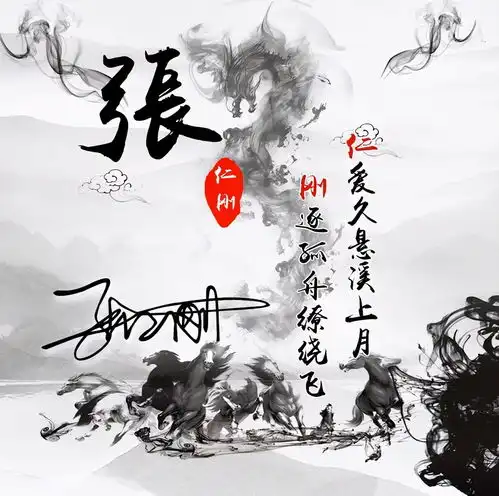 張
仁刚
仁爱久悬溪上月
刚逐孤舟缭绕飞
张仁刚